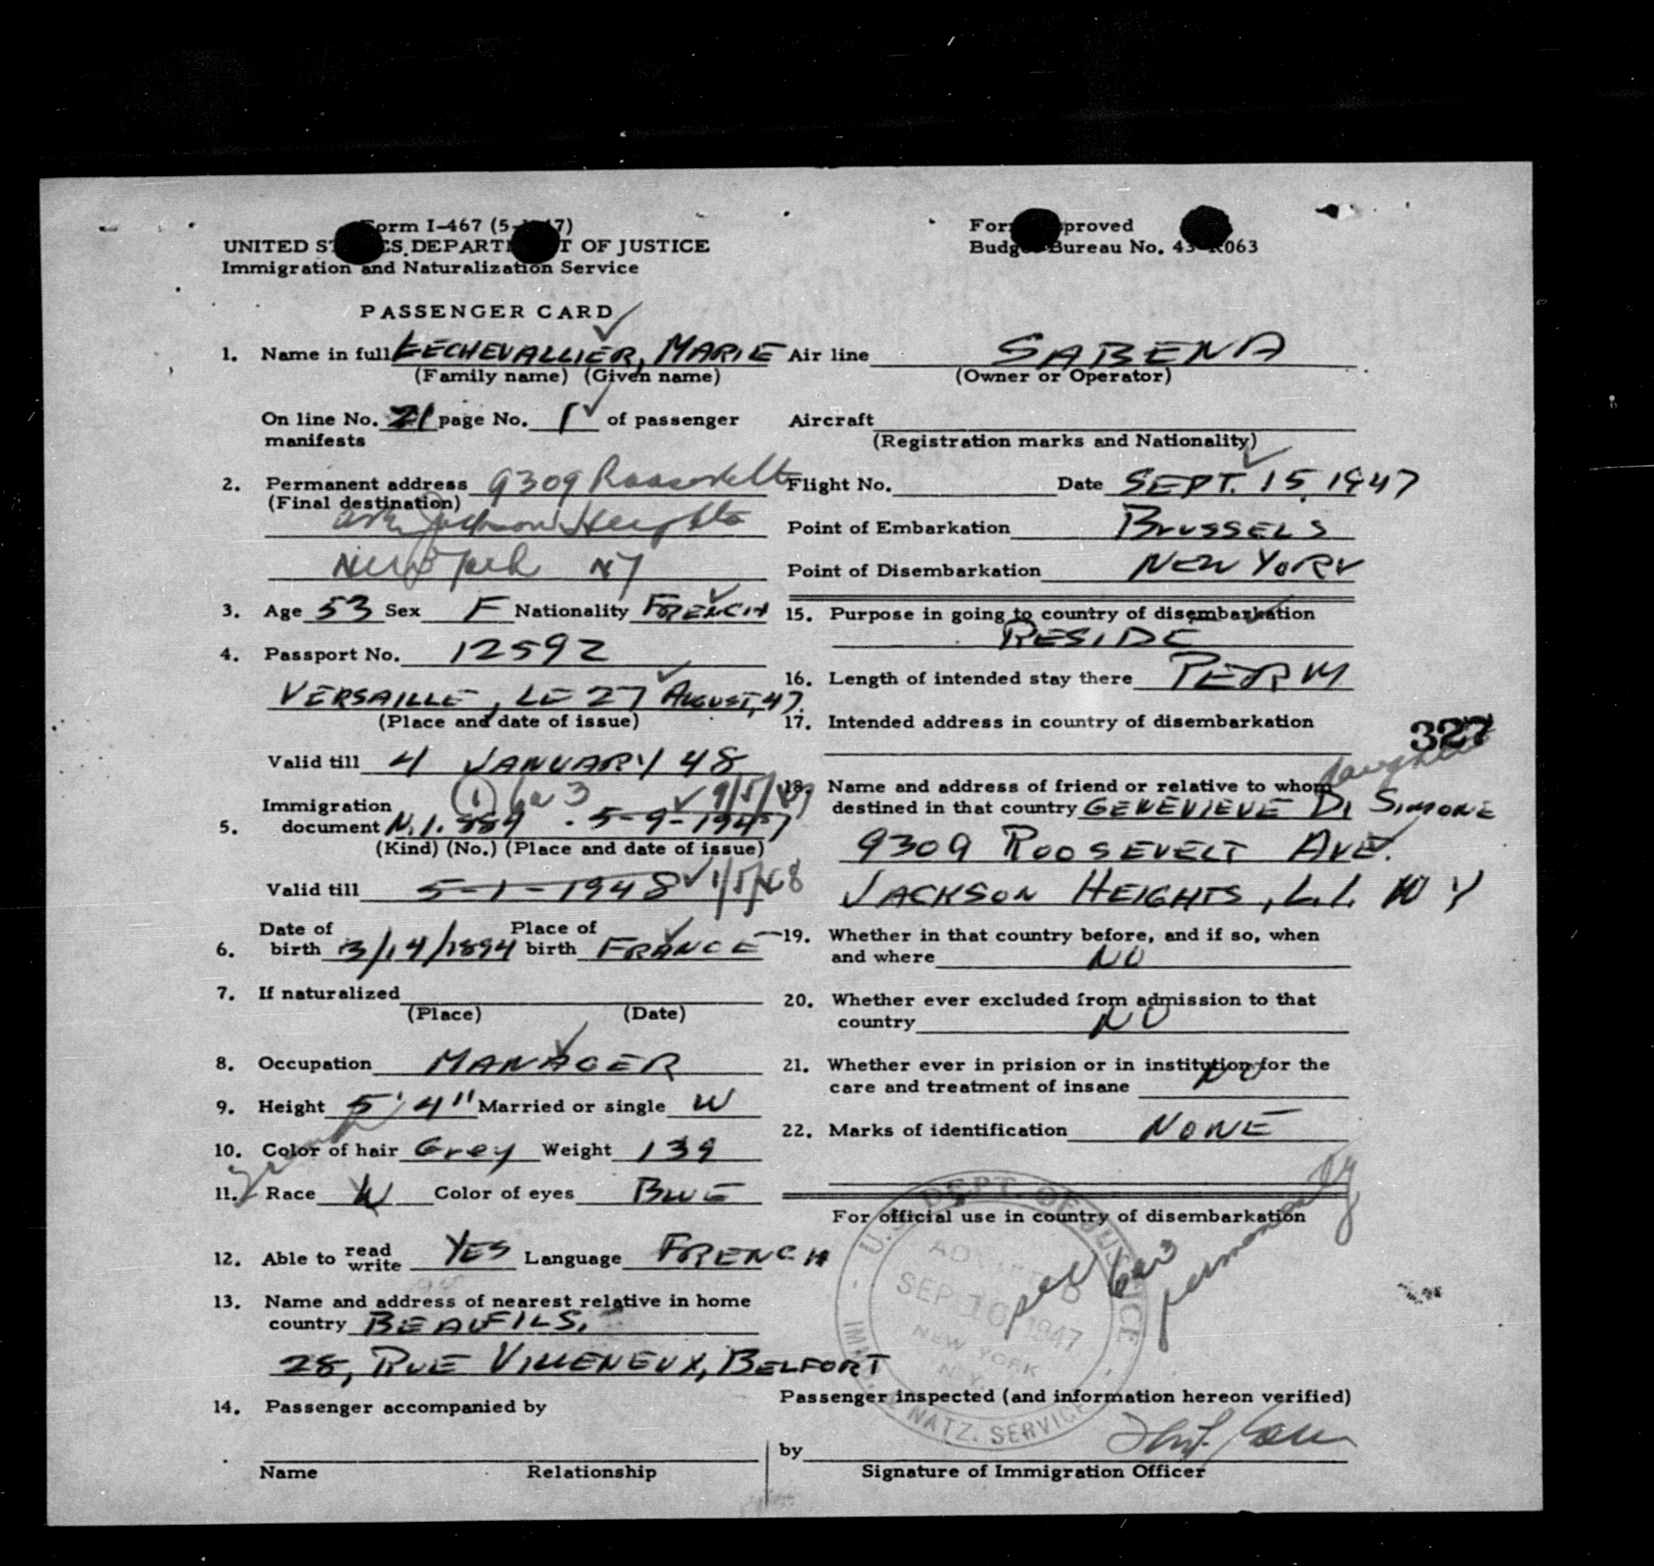 Form I-467 (5-1-47)
UNITED STATES DEPARTMENT OF JUSTICE
Immigration and Naturalization Service
Form Approved
Budget Bureau No. 43-R063
PASSENGER CARD
1. Name in full LECHEVALLIER, MARIE
(Family name) (Given name)
On line No. 21 page No. 1 of passenger
manifests
2. Permanent address 9309 Roosevelt
(Final destination)
Ave Jackson Heights
New York NY
3. Age 53 Sex F Nationality FRENCH
4. Passport No. 12592
VERSAILLE, LE 27 AUGUST, 47.
(Place and date of issue)
Valid till 4 JANUARY 48
6a3 9/5/47
Immigration
5. document N.I. 889 . 5-9-1947
(Kind) (No.) (Place and date of issue)
Valid till 5-1-1948 1/5/48
Date of Place of
6. birth 3/14/1894 birth FRANCE
7. If naturalized
(Place) (Date)
8. Occupation MANAGER
9. Height 5' 4" Married or single W
10. Color of hair Grey Weight 139
11. Race W Color of eyes BLUE
french
12. Able to read write YES Language FRENCH
13. Name and address of nearest relative in home
country BEAUFILS,
28, RUE VILLENEUX, BELFORT
14. Passenger accompanied by
Name Relationship
Air line SABENA
(Owner or Operator)
Aircraft
(Registration marks and Nationality)
Flight No. Date SEPT. 15, 1947
Point of Embarkation BRUSSELS
Point of Disembarkation NEW YORK
15. Purpose in going to country of disembarkation
RESIDE
16. Length of intended stay there PERM
17. Intended address in country of disembarkation
327
daughter
18. Name and address of friend or relative to whom
destined in that country GENEVIEVE DI SIMONE
9309 ROOSEVELT AVE.
JACKSON HEIGHTS, L.I. N Y
19. Whether in that country before, and if so, when
and where NO
20. Whether ever excluded from admission to that
country NO
21. Whether ever in prision or in institution for the
care and treatment of insane NO
22. Marks of identification NONE
For official use in country of disembarkation
U.S. DEPT. OF JUSTICE
ADMITTED
SEP 16 1947
NEW YORK
N.Y.
IMM. & NATZ. SERVICE
sec 6a3
permanently
Passenger inspected (and information hereon verified)
by
Signature of Immigration Officer